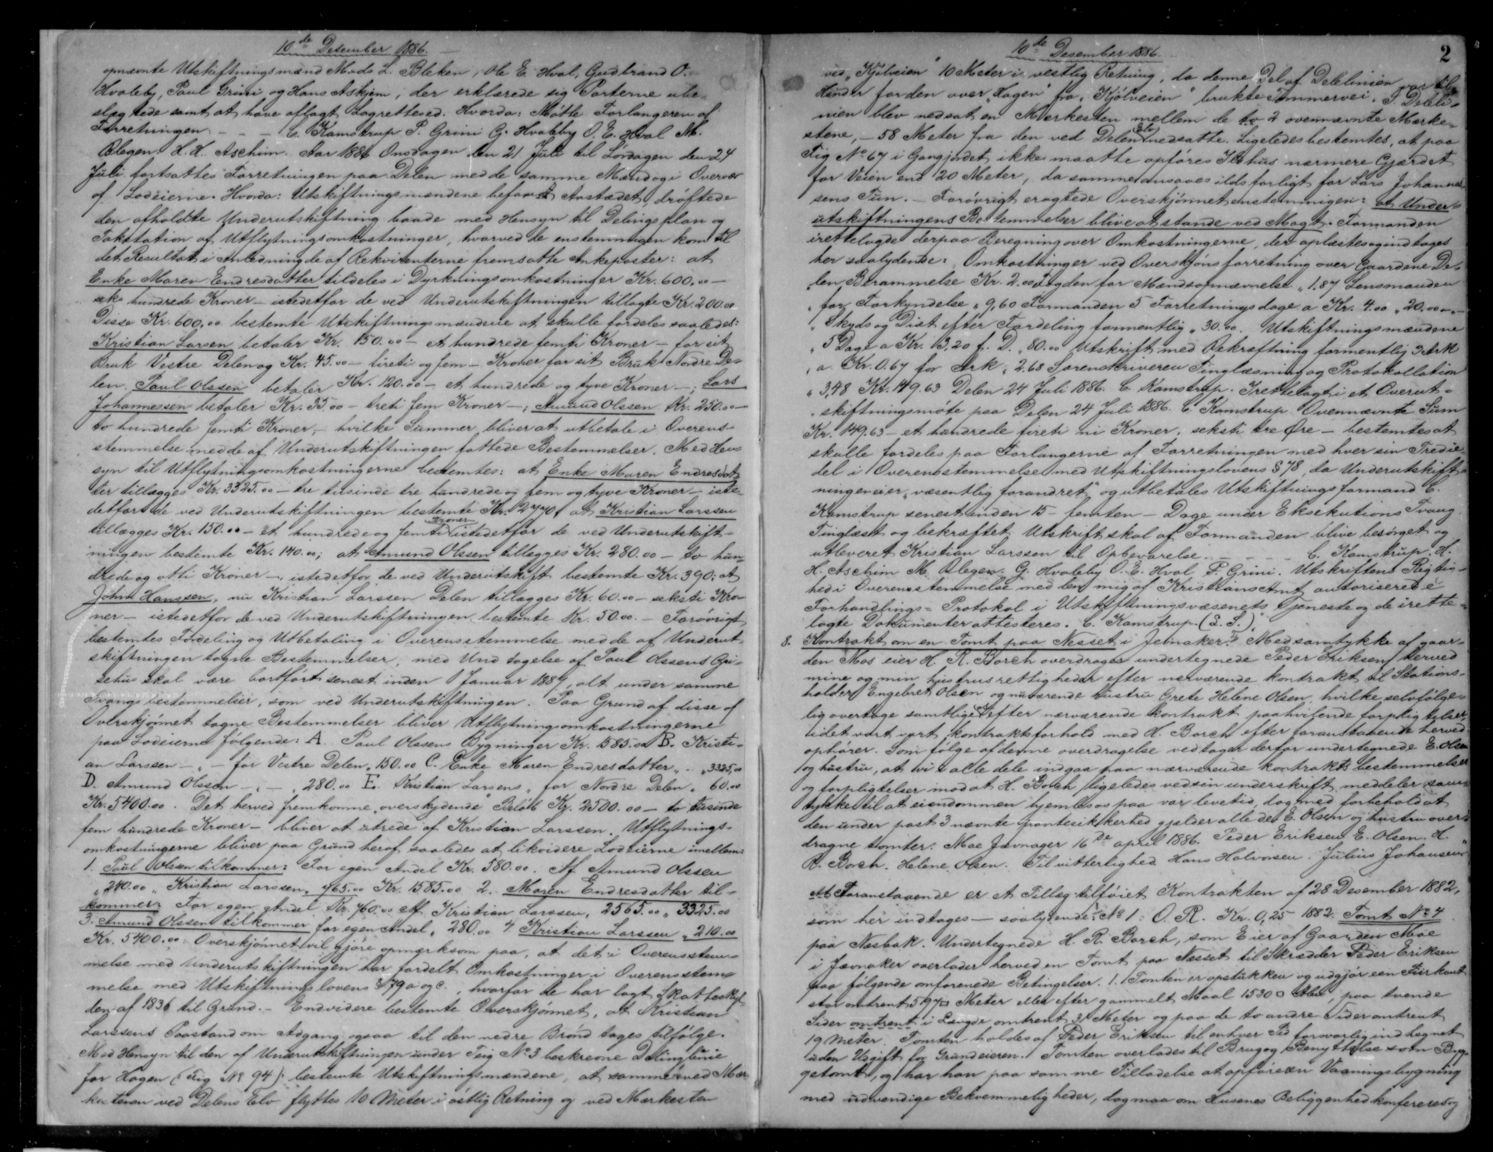 10de Desember 1886.
opnævnte Utskiftningsmænd Mads L. Bleken, Ole E. Hval, Gudbrand O.
Hvaleby, Paul Grini og Hans Askjem, der erklærede sig Parterne ube-
slægtede samt at have aflagt Lagrettesed. Hvorda: Møtte Forlangeren af
Forretningen - - - C. Kamstrup P. Grini G. Hvaleby O. E. Hval M.
Blegen H. H. Aschim. Aar 1886 Onsdagen den 21 Juli til Lørdagen den 24
Juli fortsattes Forretningen paa Delen med de samme Mænd og i Overvær
af Lodeierne. Hvorda: Utskiftningsmændene befaret Aastedet, drøftede
den afholdte Underutskiftning baade med Hensyn til Delingsplan og
Takstation af Utflytningsomkostninger, hvorved de enstemmigen kom til
det Resultat i Anledning de af Rekvirenterne fremsatte Ankeposter: at
Enke Maren Endresdatter tildeles i Dyrkningsomkostninger Kr. 600,00 -
seks hundrede Kroner - istedetfor de ved Underutskiftningen tillagte Kr. 200.00
Disse Kr. 600,00 bestemte Utskiftningsmændene at skulle fordeles saaledes:
Kristian Larsen betaler Kr. 150.00 - Et hundrede femti Kroner - for sit
Bruk Vestre Delen og Kr. 45.00 - firti og fem - Kroner for sit Bruk Nordre De-
len, Paul Olssen betaler Kr. 120.00 - et hundrede og tyve Kroner -; Lars
Johannessen betaler Kr. 35.00 - treti fem Kroner -; Amund Olssen Kr. 250.00 -
to hundrede femti Kroner, - hvilke Summer bliver at utbetale i Overens-
stemmelse med de af Underutskiftningen fattede Bestemmelser. Med Hen-
syn til Utflytningsomkostningerne bestemtes: at Enke Maren Endresdat-
ter tillægges Kr. 3325.00 - tre tusinde tre hundrede og fem og tyve Kroner - iste-
detfor de ved Underutskiftningen bestemte Kr. 2740 at Kristian Larssen
tillægges Kr. 150.00 - et hundrede og femti Kroner istedetfor de ved Underutskift-
ningen bestemte Kr. 140.00; at Amund Olssen tillægges Kr. 280.00 - to hun-
drede og otti Kroner -, istedetfor de ved Underutskift bestemte Kr. 390; at
John Hanssen, nu Kristian Larssen Delen tillægges Kr. 60.00 - seksti Kro-
ner - istedetfor de ved Underutskiftningen bestemte Kr. 50.00. - Forøvrigt
bestemtes Fordeling og Utbetaling i Overensstemmelse med de af Underut-
skiftningen tagne Bestemmelser, med Und tagelse af Paul Olssens
skal være bortført senest inden 1 Januar 1889, alt under samme
Tvangsbestemmelser, som ved Underutskiftningen. Paa Grund af disse af
Overskjønnet tagne Bestemmelser bliver Utflytningsomkostningerne
paa Lodeierne følgende: A. Paul Olssens Bygninger Kr. 1585.00 B. Kristi-
an Larssen - " - for Vestre Delen " 150.00 C. Enke Maren Endresdatter " - " 3325.00
D. Amund Olssen - " - 280.00 E. Kristian Larsens, for Nordre Delen " 60.00
Kr. 5400.00. Det herved fremkomne overskydende Beløb Kr. 2500.00 - to tusinde
fem hundrede Kroner - bliver at utrede af Kristian Larssen. Utflytnings-
omkostningerne bliver paa Grund heraf saaledes at likvidere Lodeierne imellem:
1. Paul Olssen tilkommer: For egen Andel Kr. 380.00 Af Amund Olssen
" 240.00 " Kristian Larssen, 965.00 Kr. 1585.00 2. Maren Endresdatter til-
kommer: For egen Andel Kr. 760.00 Af Kristian Larssen, 2565.00 " 3325.00
3. Amund Olssen tilkommer for egen Andel " 280.00 4 Kristian Larssen " 210.00
Kr. 5400.00. Overskjønnet vil gjøre opmerksom paa, at det i Overensstem-
melse med Underutskiftningen har fordelt Omkostninger i Overensstem-
melse med Utskiftningslovens § 79 a og c., hvorfor de har lagt Skatteskyl-
den af 1836 til Grund. - Endvidere bestemte Overskjønnet, at Kristian
Larssens Paastand om Adgang ogsaa til den nedre Brønd tages tilfølge.
Med Hensyn til den af Underutskiftningen under Teig No 3 beskrevne Delingslinie
for Hagen (Teig No 94) bestemte Utskiftningsmændene, at samme ved Mær-
kestenen ved Delens Elv flyttes 10 Meter i østlig Retning og ved Markesten
10de Desember 1886.
2
ved "Kjølveien" 10 Meter i vestlig Retning, da denne Del af Delelinien var til
Hinder for den over "Hagen" fra "Kjølveien" brukte Tømmervei. I Deleli-
nien blev nedsat en Merkesten mellem de to 2 ovennævnte Merke-
stene, - 58 Meter fra den ved Delen nedsatte. Ligeledes bestemtes, at paa
Teig No 67 i Gangjordet ikke maatte opføres Ildhus nærmere Gjerdet
for Veien end 20 Meter, da samme ansaaes ildsfarligt for Lars Johannes-
sens Tun. - Forøvrigt eragtede Overskjønnet enstemmigen: at Under-
utskiftningens Bestemmelser blive at stande ved Magt. Formanden
irettelagde derpaa Beregning over Omkostningerne, der oplæstes og indtages
her saalydende: Omkostninger ved Overskjønsforretning over Gaardene De-
len Berammelse Kr. 2.00 for Mandsopnævnelse " 1.87 Lensmanden
for Forkyndelse " 9,60 Formanden 5 Forretningsdage a Kr. 4.00 " 20.00 " -
" Skyds og Diæt efter Fordeling formentlig " 30.00. Utskiftningsmændene
" 5 Dage a Kr. 3,20 f. D. " 80.00 Utskrift med Bekræftning formentlig 3 Ark
" a Kr. 0.67 for Ark " 2.68 Sorenskriveren Tinglæsning og Protokollation
" 3,48 Kr. 149.63 Delen 24 Juli 1886. C. Kamstrup. Irettelagt i et Overut-
" skiftningsmøte paa Delen 24 Juli 1886. C. Kamstrup. Ovennævnte Sum
Kr. 149.63 - et hundrede firti ni Kroner, seksti tre Øre - bestemtes at
skulle fordeles paa Forlangerne af Forretningen med hver sin Tredie-
del i Overensstemmelse med Utskiftningslovens § 78, da Underutskift-
ningen ei er "væsentlig forandret", og utbetales Utskiftningsformand C.
Kamstrup senest inden 15 - femten - Dage under Eksekutions Tvang.
Tinglæst og bekræftet Utskrift skal af Formanden blive besørget og
utleveret Kristian Larssen til Opbevarelse. - - - C. Kamstrup. H.
H. Aschim M. Blegen G. Hvaleby O. E. Hval P. Grini. Utskriftens Rigtig-
hed i Overensstemmelse med den mig af Kristians Amt autoriserede
Forhandlings-Protokol i Utskiftningsvæsenets Tjeneste og de irette-
lagte Dokumenter attesteres. C. Kamstrup (L. S.)
8. Kontrakt om en Tomt paa Nesset i Jevnaker: Med samtykke af gaar-
den Moe eier H. R. Borch overdrager undertegnede Peder Eriksen herved
mine og min hustrus rettigheder efter nærværende kontrakt til Stations-
holder Engebret Olsen og nuværende hustru Grete Helene Olsen, hvilke selvfølge-
lig overtage samtlige efter nærværende kontrakt paahvilende forpligtelser,
idet vort vort kontraktforhold med H. Borch efter foranstaaende herved
ophører. Som følge af denne overdragelse vedtager derfor undertegnede E. Olsen
og hustru, at vi i alle dele indgaa paa nærværende kontrakts bestemmelser
og forpligtelser mod at H. Borch ligeledes ved sin underskrift meddeler sam-
tykke til at eiendommen hjemles os paa vor levetid, dog med forbehold at
den under post 3 nævnte pantesikkerhed gjælder alle de E. Olsen og hustru over-
dragne tomter. Moe Jævnager 16de april 1886. Peder Eriksen E. Olsen. H.
R. Borch. Helene Olsen. Til vitterlighed Hans Halvorsen. Julius Johansen
At Foranstaaende er et Tillæg tilføiet Kontrakten af 28 Desember 1882,
som her indtages - saalydende: No 1: O. R. Kr. 0,25 1882. Tomt No 4
paa Nesbak. Undertegnede H. R. Borch, som Eier af Gaarden Moe
i Jævnaker overlader herved en Tomt paa Nesset til Skrædder Peder Eriksen
paa følgende anførende Betingelser. 1. Tomten er opstukken og udgjør een Fiirkant
stor omtrent 597 □ Meter eller efter gammelt Maal 1530 □ Alen, paa tvende
Sider omtrent i Længde omtrent 31 Meter og paa de to andre Sider omtrent
19 Meter. Tomten holdes af Peder Eriksen til enhver Tid forsvarlig indhegnet
uden Udgift for Grundeieren. Tomten overlades til Brug og Benyttelse som Byg-
getomt, og har han paa samme Tilladelse at opføre en Vaaningsbygning
med nødvendige Bekvemmeligheder, dog maa om Husenes Beliggenhed konfereres og